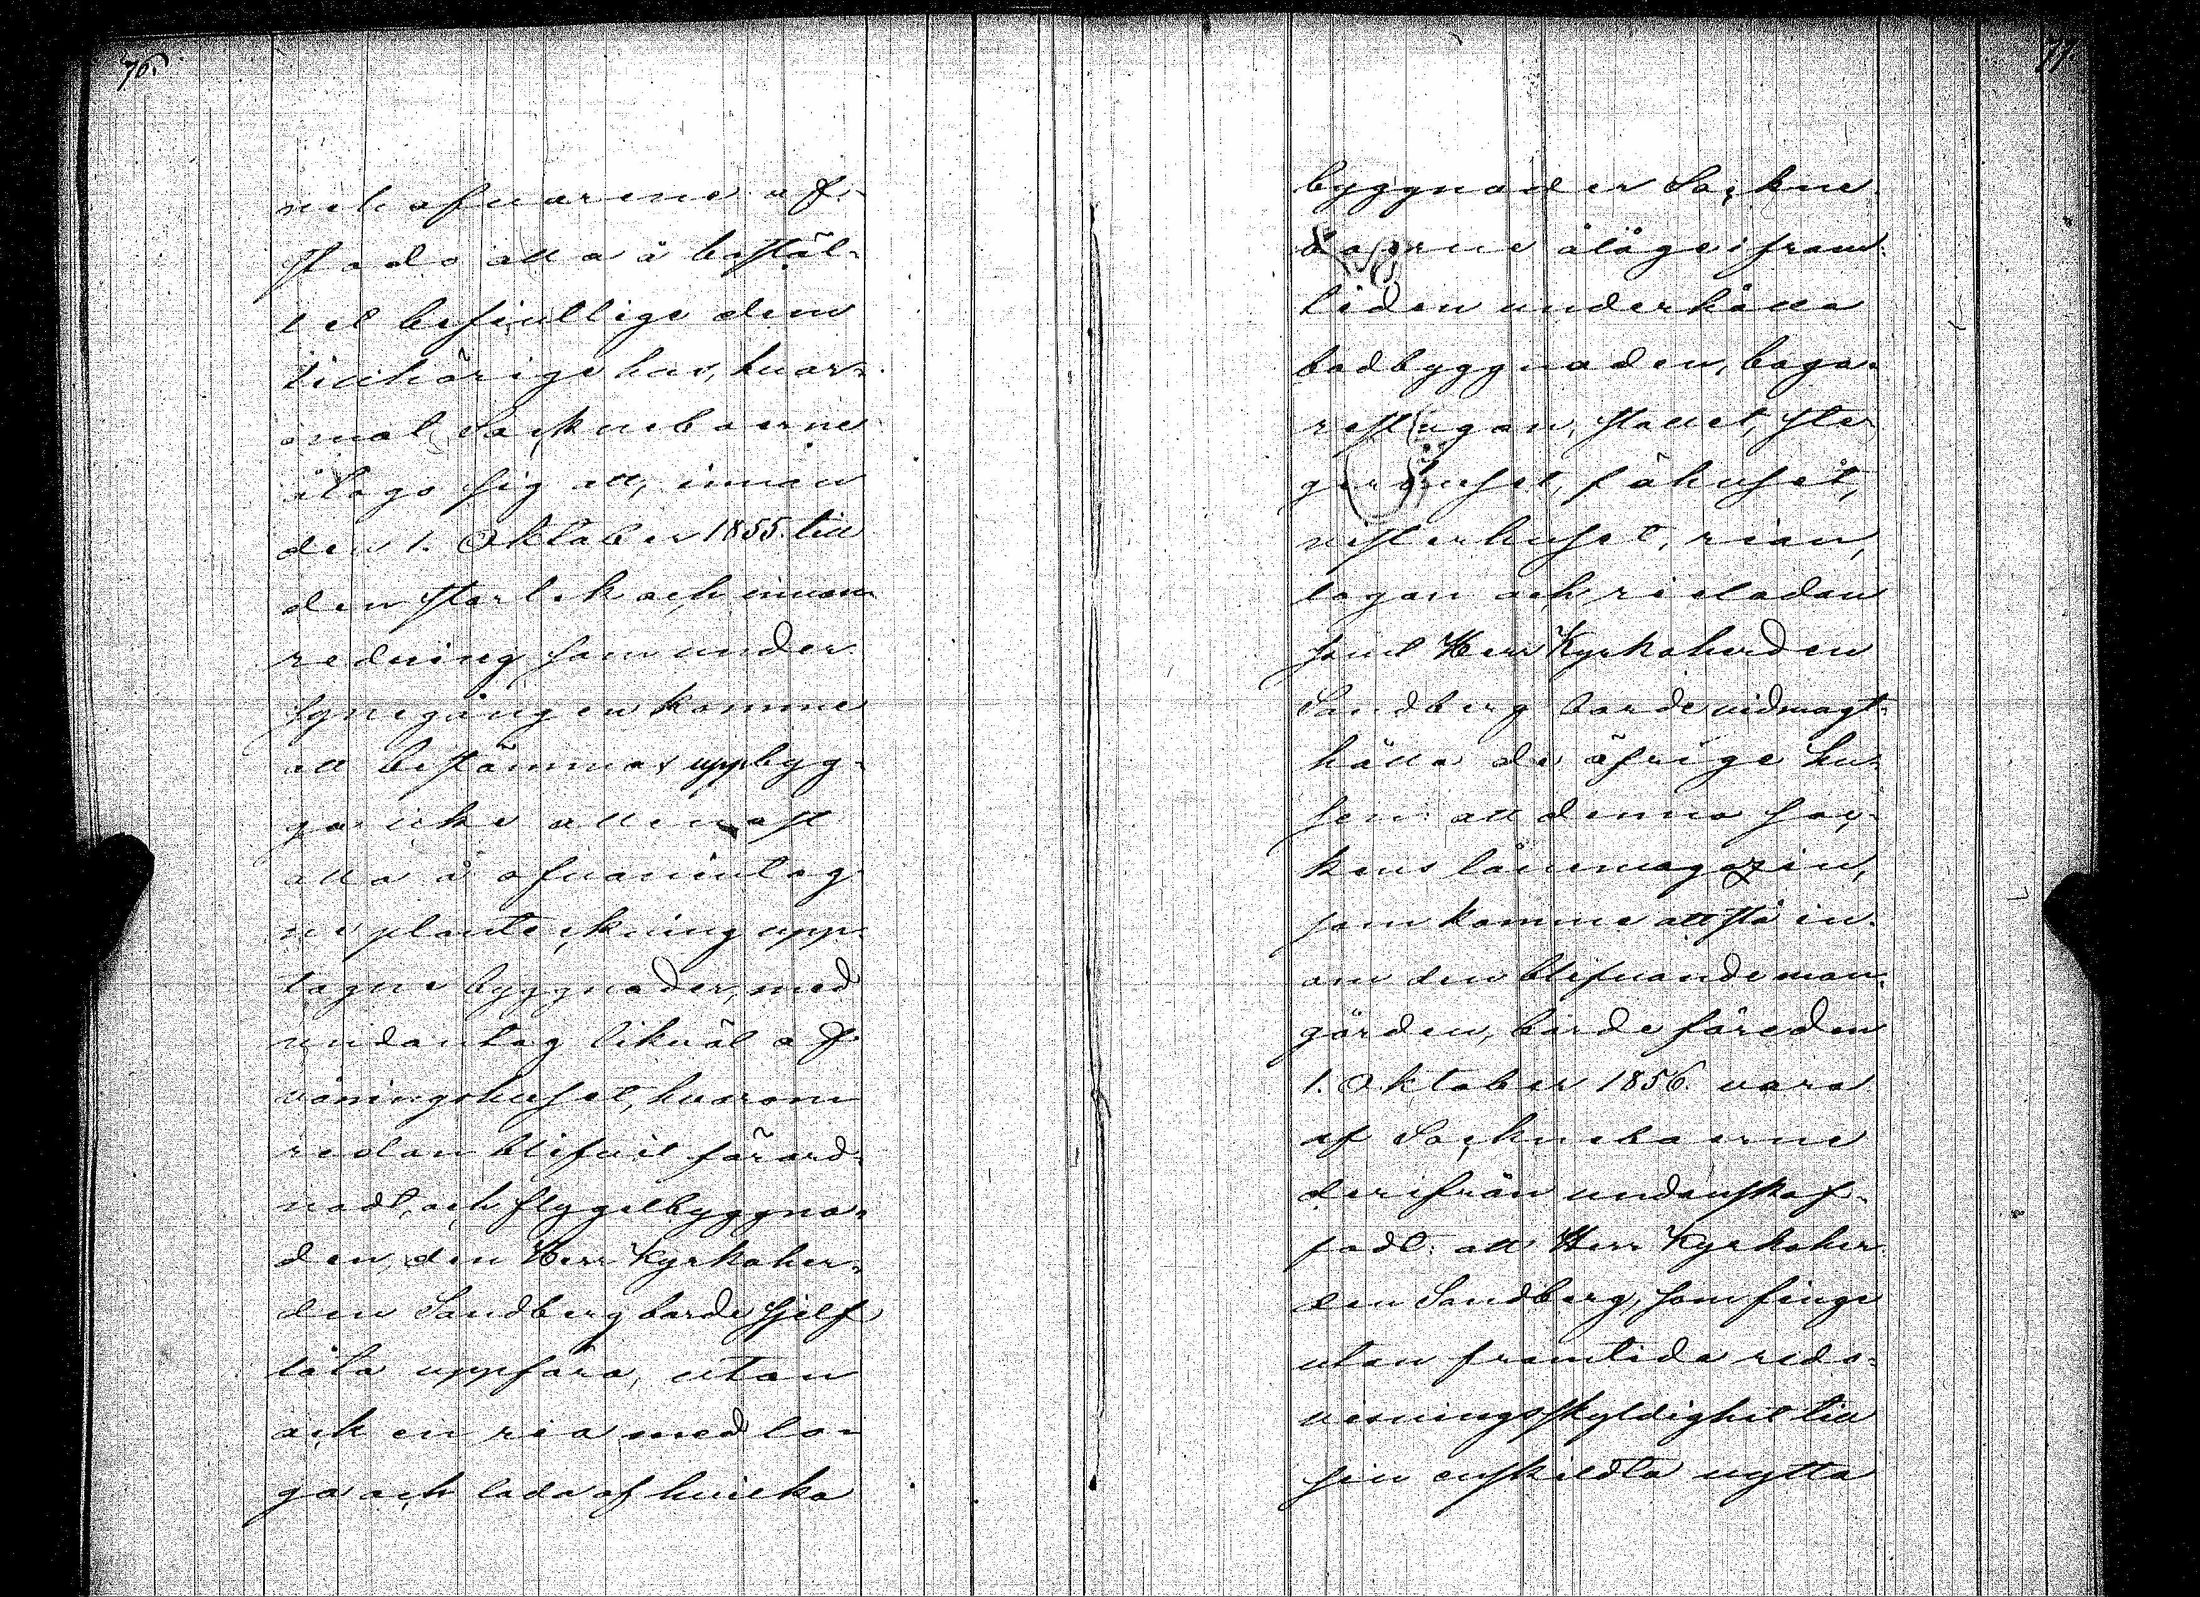 76.
nehafvarene af-
stådo alla å bostäl-
let befintlige dem
tillhörige hus, hvar-
emot Sockneboerne
ålago sig att, innan
den 1. Oktober 1855. till
den storlek och innan-
redning som under
synegången komme
att bestämmas uppbyg-
ga icke allenast
alla å ofvanintag-
ne planteckning upp-
tagne byggnader, med
undantag likväl af
våningshuset, hvarom
redan blifvit förord-
nadt, och flygelbyggna-
den, den Herr Kyrkoher-
den Sandberg borde sjelf
låta uppföra, utan
ock en ria med lo-
ga och lada af hvilka
77.
byggnader Sockne-
boerne ålåge i fram-
tiden underhålla
bodbyggnaden, baga-
restugan, stallet, ste-
gerhuset, fähuset,
visterhuset, rian,
logan och rieladan
samt Herr Kyrkoherden
Sandberg borde vidmagt-
hålla de öfrige hu-
sen: att denna soc-
kens lånemagazin,
som komme att stå in-
om den blifvande man-
gården, borde före den
1. Oktober 1856. vara
af Socknebоerne
derifrån undanskaf-
fadt: att Herr Kyrkoher-
den Sandberg, som finge
utan framtida redo-
visningsskyldighet till
sin enskildta nytta